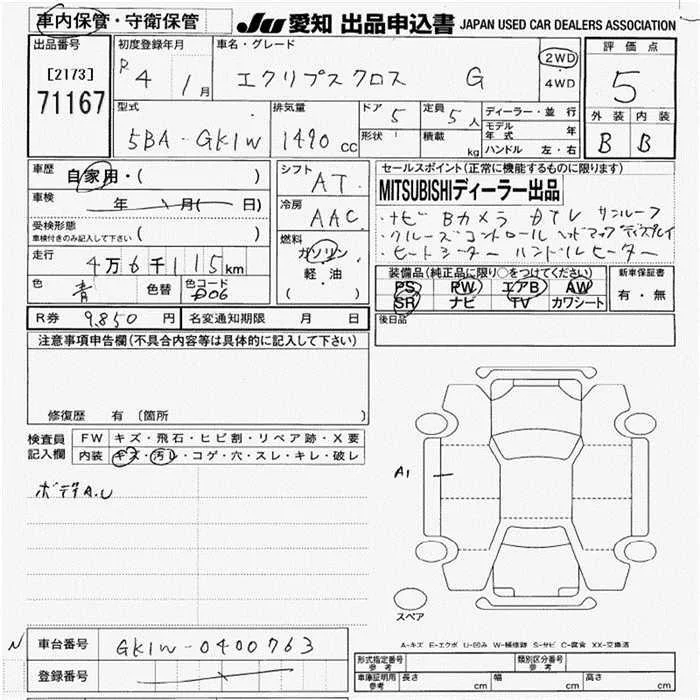 車内保管・守衛保管
JU 愛知 出品申込書 JAPAN USED CAR DEALERS ASSOCIATION
出品番号 初度登録年月 車名・グレード 評価点
[2173] R 4 1月 エクリプスクロス G 2WD 4WD 5
71167
型式 排気量 ドア 定員 ディーラー・並行 外装 内装
5BA-GK1W 1490 cc 5 5人 モデル年式 年 B B
形状 積載 kg ハンドル 左・右
車歴 自家用・( ) シフト AT セールスポイント(正常に機能するものに限ります)
車検 年 月( 日) 冷房 AAC MITSUBISHIディーラー出品
受検形態 車検付きのみ記入して下さい ( )
・ナビ Bカメラ DTV サンルーフ
・クルーズコントロール ヘッドアップディスプレイ
・ヒートシーター ハンドルヒーター
走行 4万6千115km 燃料 ガソリン 軽・油 ( )
色 青 色替 色コード D06
装備品(純正品に限り○をつけてください) 新車保証書
PS PW エアB AW 有・無
SR ナビ TV カワシート
R券 9,850 円 名変通知期限 月 日 後日品
注意事項申告欄(不具合内容等は具体的に記入して下さい)
修復歴 有 〔箇所 〕
検査員記入欄 FW キズ・飛石・ヒビ割・リペア跡・X要
内装 キズ・汚レ・コゲ・穴・スレ・キレ・破レ
ボデA.U
A1
スペア
A-キズ E-エクボ U-凹み W-補修跡 S-サビ C-腐食 XX-交換済
N 車台番号 GK1W-0400763
登録番号
形式指定番号 参考 類別区分番号 参考
車庫証明用 参考 長さ cm 幅 cm 高さ cm